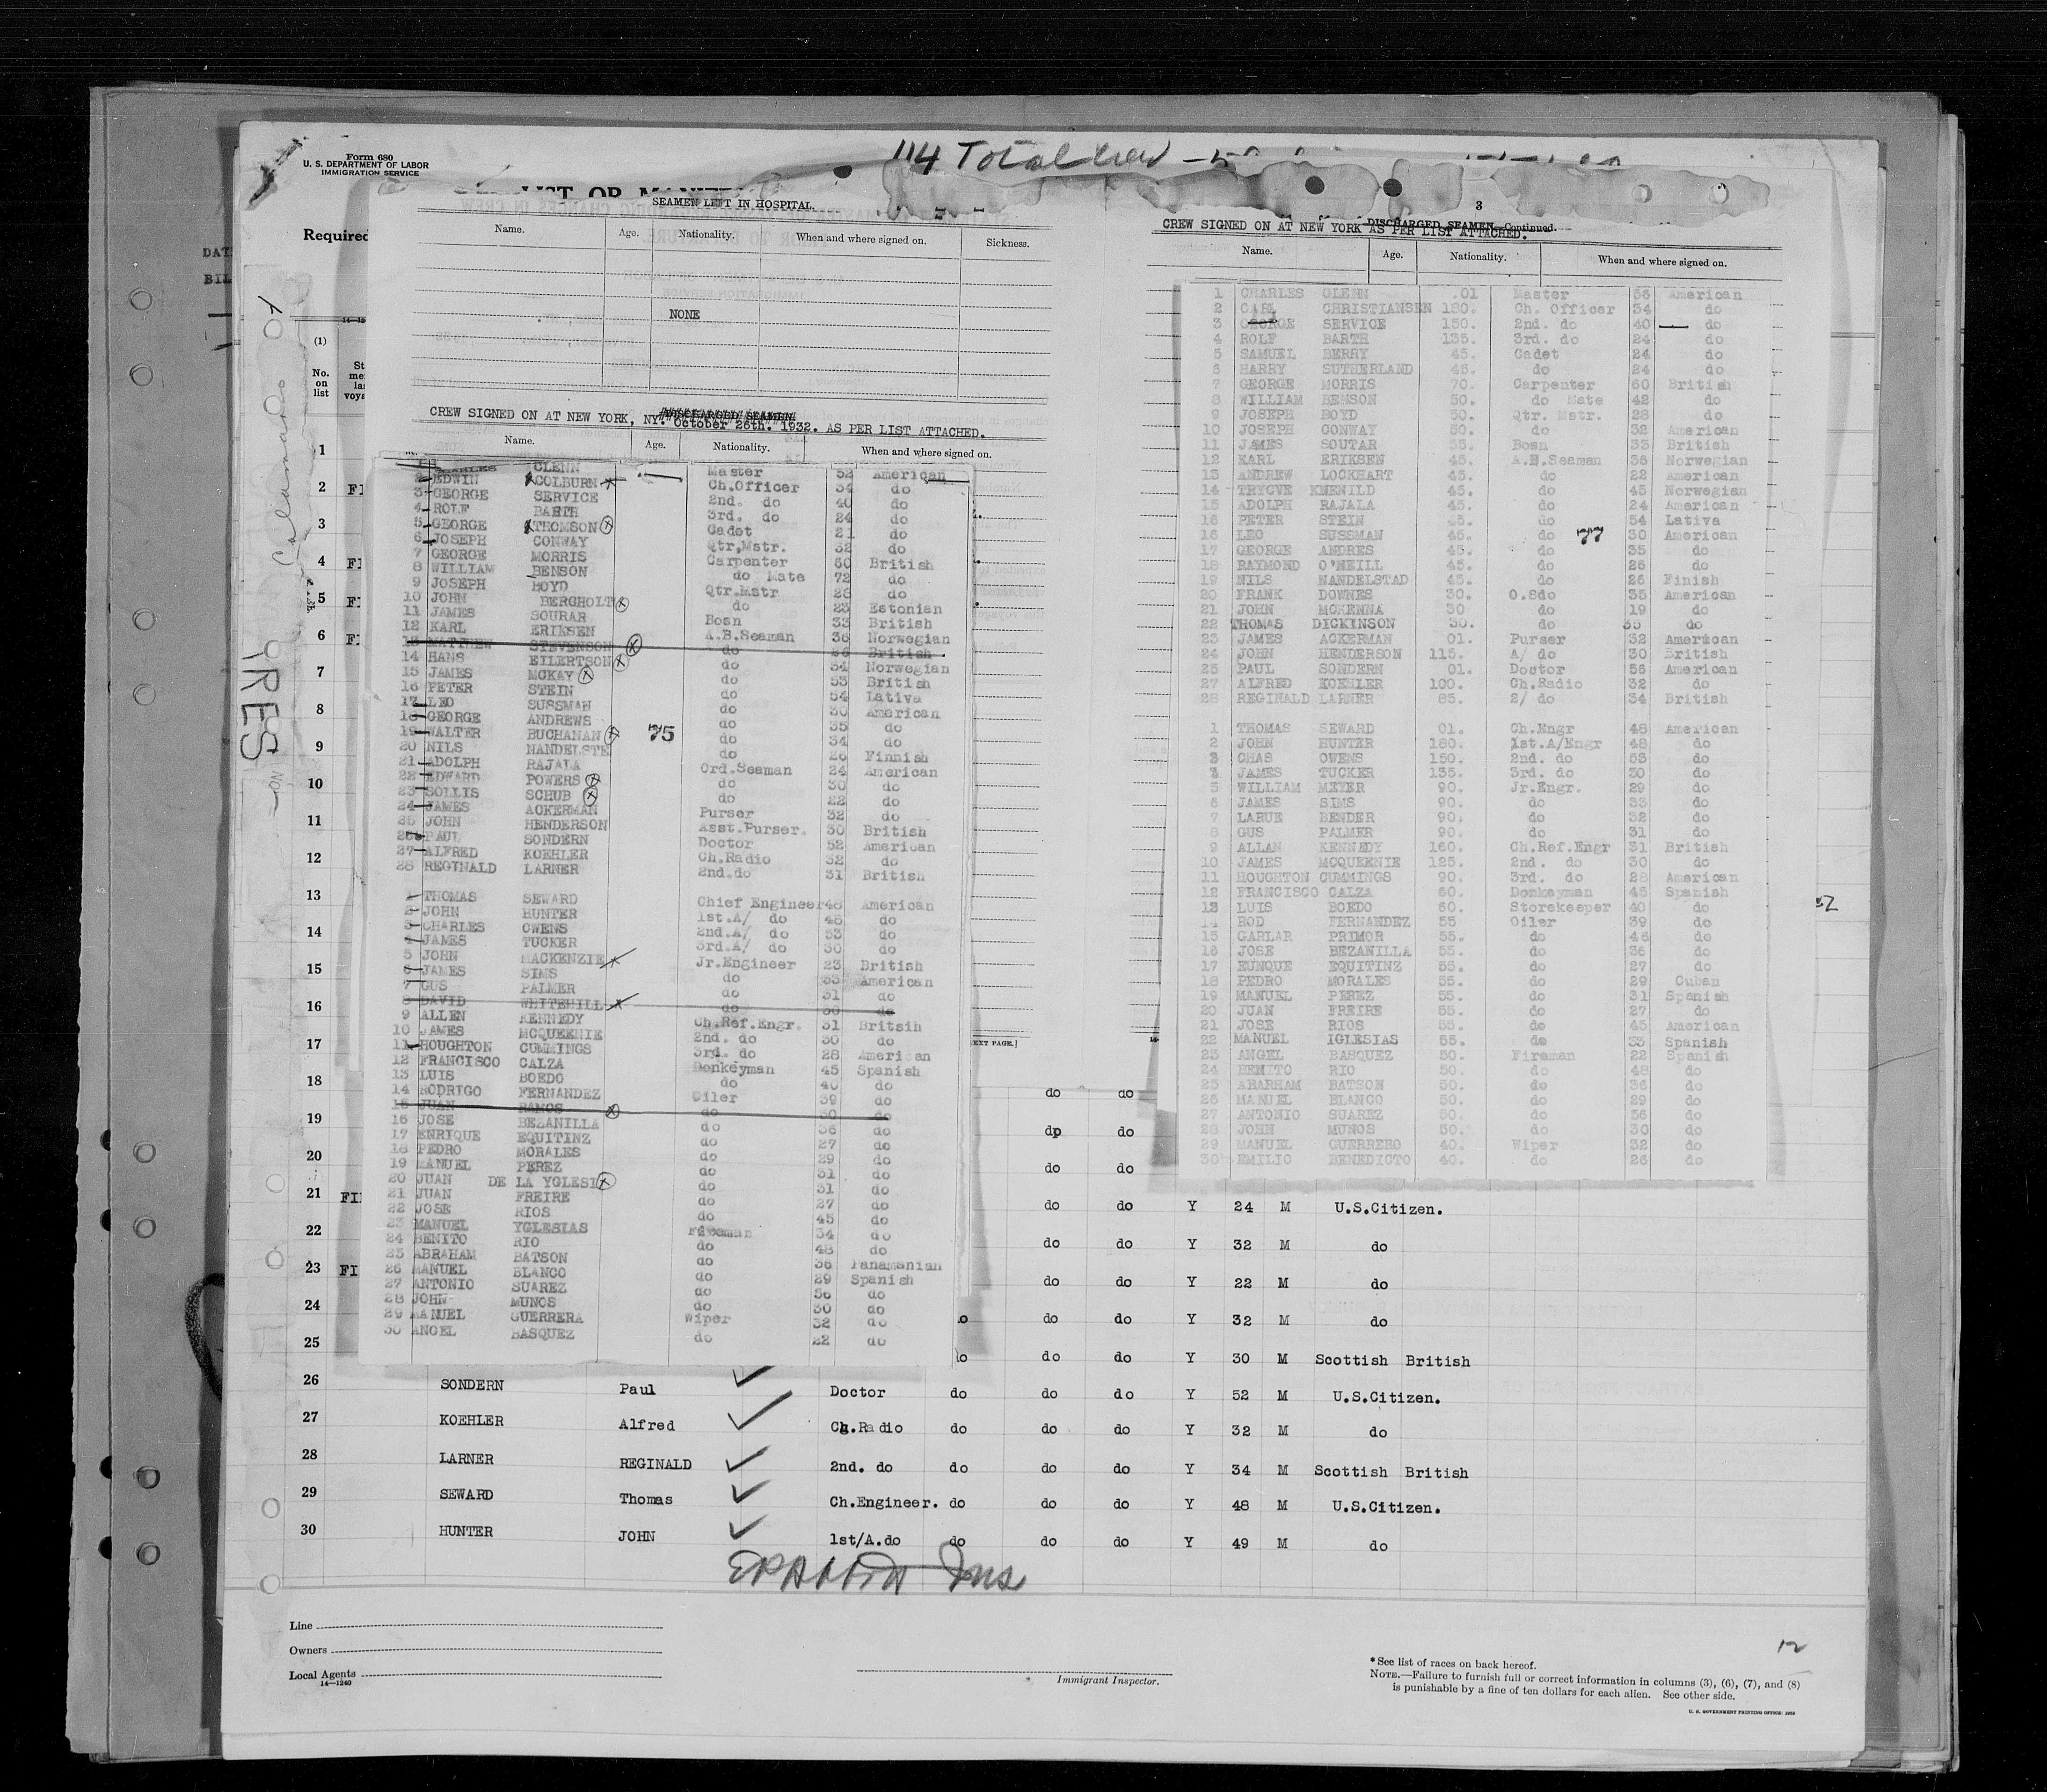 114 Total crew
Form 680
U. S. DEPARTMENT OF LABOR
IMMIGRATION SERVICE
Required
(1)
No. on list
SEAMEN LEFT IN HOSPITAL.
Name. Age. Nationality. When and where signed on. Sickness.
NONE
DISCHARGED SEAMEN.
CREW SIGNED ON AT NEW YORK, NY. October 26th. 1932. AS PER LIST ATTACHED.
Name. Age. Nationality. When and where signed on.
CHARLES GLENN Master 52 American
2 EDWIN COLBURN Ch.Officer 34 do
3 GEORGE SERVICE 2nd. do 40 do
4 ROLF BARTH 3rd. do 24 do
5 GEORGE THOMSON Cadet 21 do
6 JOSEPH CONWAY Qtr,Mstr. 32 do
7 GEORGE MORRIS Carpenter 60 British
8 WILLIAM BENSON do Mate 72 do
9 JOSEPH BOYD Qtr.Mstr 28 do
10 JOHN BERGHOLT do 23 Estonian
11 JAMES SOURAR Bosn 33 British
12 KARL ERIKSEN A.B.Seaman 36 Norwegian
13 MATTHEW STEVENSON do 36 British
14 HANS EILERTSON do 54 Norwegian
15 JAMES MCKAY do 53 British
16 PETER STEIN do 54 Lativa
17 LEO SUSSMAN do 30 American
18 GEORGE ANDREWS do 35 do
19 WALTER BUCHANAN 75 do 34 do
20 NILS NANDELSTE do 26 Finnish
21 ADOLPH RAJALA Ord.Seaman 24 American
22 EDWARD POWERS do 30 do
23 SOLLIS SCHUB do 22 do
24 JAMES ACKERMAN Purser 32 do
25 JOHN HENDERSON Asst.Purser. 30 British
26 PAUL SONDERN Doctor 52 American
27 ALFRED KOEHLER Ch.Radio 32 do
28 REGINALD LARNER 2nd.do 31 British
THOMAS SEWARD Chief Engineer 48 American
2 JOHN HUNTER 1st.A/ do 48 do
3 CHARLES OWENS 2nd.A/ do 53 do
JAMES TUCKER 3rd.A/ do 30 do
5 JOHN MACKENZIE Jr.Engineer 23 British
6 JAMES SIMS do 33 American
7 GUS PALMER do 31 do
8 DAVID WHITEHILL do 30 do
9 ALLEN KENNEDY Ch.Ref.Engr. 31 Britsih
10 JAMES MCQUEENIE 2nd. do 30 do
11 HOUGHTON CUMMINGS 3rd. do 28 American
12 FRANCISCO CALZA Donkeyman 45 Spanish
13 LUIS BOEDO do 40 do
14 RODRIGO FERNANDEZ Oiler 39 do
15 JUAN RAMOS do 30 do
16 JOSE BEZANILLA do 36 do
17 ENRIQUE EQUITINZ do 27 do
18 PEDRO MORALES do 29 do
19 MANUEL PEREZ do 31 do
20 JUAN DE LA YGLESI do 31 do
21 JUAN FREIRE do 27 do
22 JOSE RIOS do 45 do
23 MANUEL YGLESIAS Fireman 34 do
24 BENITO RIO do 48 do
25 ABRAHAM BATSON do 36 Panamanian
26 MANUEL BLANCO do 29 Spanish
27 ANTONIO SUAREZ do 56 do
28 JOHN MUNOS do 30 do
29 MANUEL GUERRERA Wiper 32 do
30 ANGEL BASQUEZ do 22 do
3
DISCHARGED SEAMEN—Continued.
CREW SIGNED ON AT NEW YORK AS PER LIST ATTACHED.
Name. Age. Nationality. When and where signed on.
1 CHARLES GLENN .01 Master 56 American
2 CARL CHRISTIANSEN 180. Ch. Officer 34 do
3 GEORGE SERVICE 150. 2nd. do 40 do
4 ROLF BARTH 135. 3rd. do 24 do
5 SAMUEL BERRY 45. Cadet 24 do
6 HARRY SUTHERLAND 45. do 24 do
7 GEORGE MORRIS 70. Carpenter 60 British
8 WILLIAM BENSON 50. do Mate 42 do
9 JOSEPH BOYD 50. Qtr. Mstr. 28 do
10 JOSEPH CONWAY 50. do 32 American
11 JAMES SOUTAR 55. Bosn 33 British
12 KARL ERIKSEN 45. A.B.Seaman 36 Norwegian
13 ANDREW LOCKHART 45. do 22 American
14 TRYGVE KNENILD 45. do 45 Norwegian
15 ADOLPH RAJALA 45. do 24 American
16 PETER STEIN 45. do 54 Lativa
16 LEO SUSSMAN 45. do 77 30 American
17 GEORGE ANDRES 45. do 35 do
18 RAYMOND O'NEILL 45. do 25 do
19 NILS NANDELSTAD 45. do 26 Finish
20 FRANK DOWNES 30. O.Sdo 35 American
21 JOHN MCKENNA 30 do 19 do
22 THOMAS DICKINSON 30. do 35 do
23 JAMES ACKERMAN 01. Purser 32 American
24 JOHN HENDERSON 115. A/ do 30 British
25 PAUL SONDERN 01. Doctor 56 American
27 ALFRED KOEHLER 100. Ch.Radio 32 do
28 REGINALD LARNER 85. 2/ do 34 British
1 THOMAS SEWARD 01. Ch.Engr 48 American
2 JOHN HUNTER 180. 1st.A/Engr 48 do
3 CHAS OWENS 150. 2nd. do 53 do
4 JAMES TUCKER 135. 3rd. do 30 do
5 WILLIAM MEYER 90. Jr.Engr. 29 do
6 JAMES SIMS 90. do 33 do
7 LARUE BENDER 90. do 32 do
8 GUS PALMER 90. do 31 do
9 ALLAN KENNEDY 160. Ch.Ref.Engr 31 British
10 JAMES MCQUEENIE 125. 2nd. do 30 do
11 HOUGHTON CUMMINGS 90. 3rd. do 28 American
12 FRANCISCO CALZA 60. Donkeyman 45 Spanish
13 LUIS BOEDO 60. Storekeeper 40 do
14 ROD FERNANDEZ 55 Oiler 39 do
15 GARLAR PRIMOR 55. do 46 do
16 JOSE BEZANILLA 55. do 36 do
17 EUNQUE EQUITINZ 55. do 27 do
18 PEDRO MORALES 55. do 29 Cuban
19 MANUEL PEREZ 55. do 31 Spanish
20 JUAN FREIRE 55. do 27 do
21 JOSE RIOS 55. do 45 American
22 MANUEL IGLESIAS 55. do 33 Spanish
23 ANGEL BASQUEZ 50. Fireman 22 Spanish
24 BENITO RIO 50. do 48 do
25 ABARHAM BATSON 50. do 36 do
26 MANUEL BLANCO 50. do 29 do
27 ANTONIO SUAREZ 50. do 56 do
28 JOHN MUNOS 50. do 30 do
29 MANUEL GUERRERO 40. Wiper 32 do
30 EMILIO BENEDICTO 40. do 26 do
1
2
3
4
5
6
7
8
9
10
11
12
13
14
15
16
17
18 do do
19 dp do
20 do do
21 do do Y 24 M U.S.Citizen.
22 do do Y 32 M do
23 do do Y 22 M do
24 do do Y 32 M do
25 do do Y 30 M Scottish British
26 SONDERN Paul Doctor do do do Y 52 M U.S.Citizen.
27 KOEHLER Alfred Ch.Radio do do do Y 32 M do
28 LARNER REGINALD 2nd. do do do do Y 34 M Scottish British
29 SEWARD Thomas Ch.Engineer. do do do Y 48 M U.S.Citizen.
30 HUNTER JOHN 1st/A.do do do do Y 49 M do
Line
Owners
Local Agents
14—1240
Immigrant Inspector.
12
* See list of races on back hereof.
NOTE.—Failure to furnish full or correct information in columns (3), (6), (7), and (8)
is punishable by a fine of ten dollars for each alien. See other side.
U. S. GOVERNMENT PRINTING OFFICE: 1929